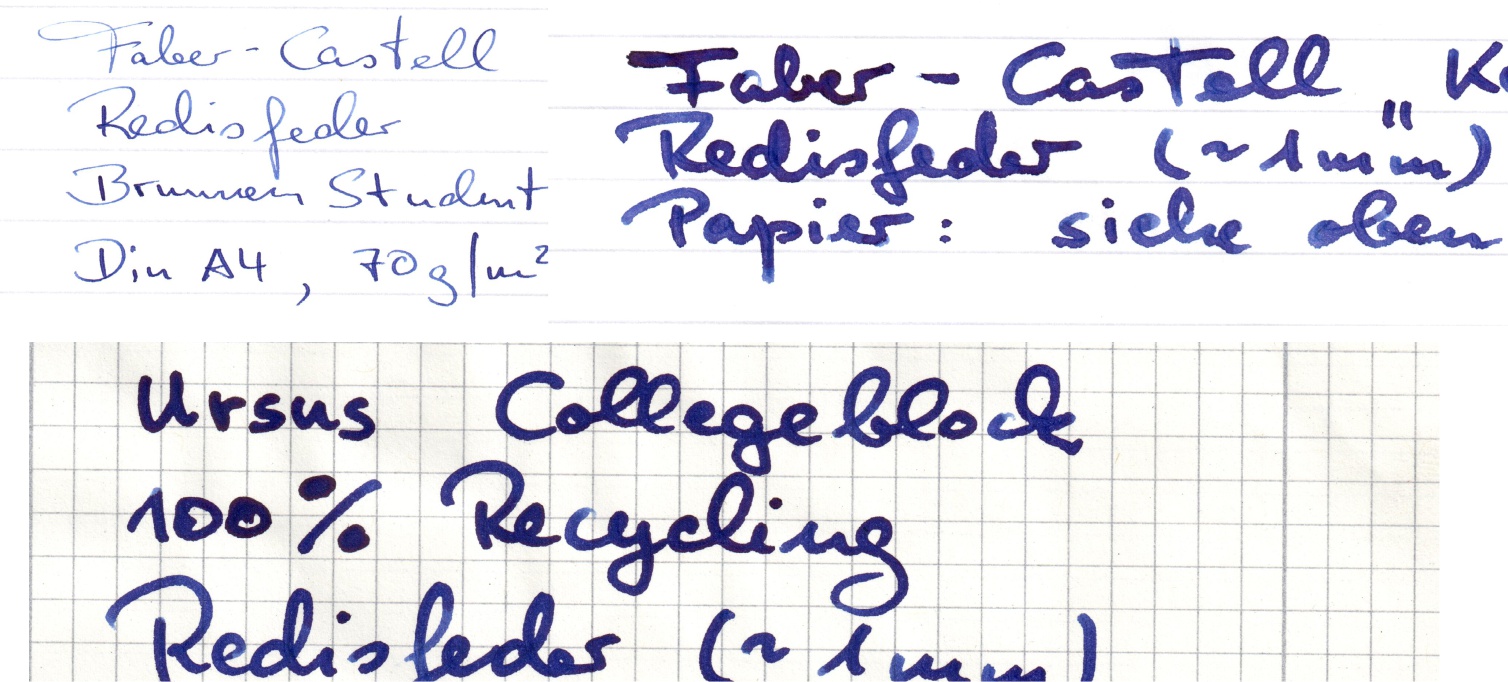 Faber-Castell
Redisfeder
Brunnen Student
Din A4, 70g/m²
Faber - Castell
Redisfeder (~1mm)
Papier: siehe oben
Ursus Collegeblock
100% Recycling
Redisfeder (~1mm)